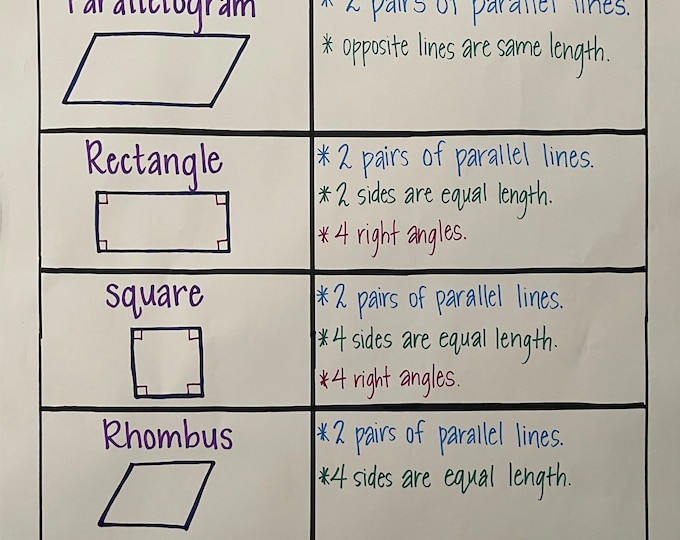 Parallelogram
* 2 pairs of parallel lines.
* opposite lines are same length.
Rectangle
* 2 pairs of parallel lines.
* 2 sides are equal length.
* 4 right angles.
square
* 2 pairs of parallel lines.
* 4 sides are equal length.
* 4 right angles.
Rhombus
* 2 pairs of parallel lines.
* 4 sides are equal length.